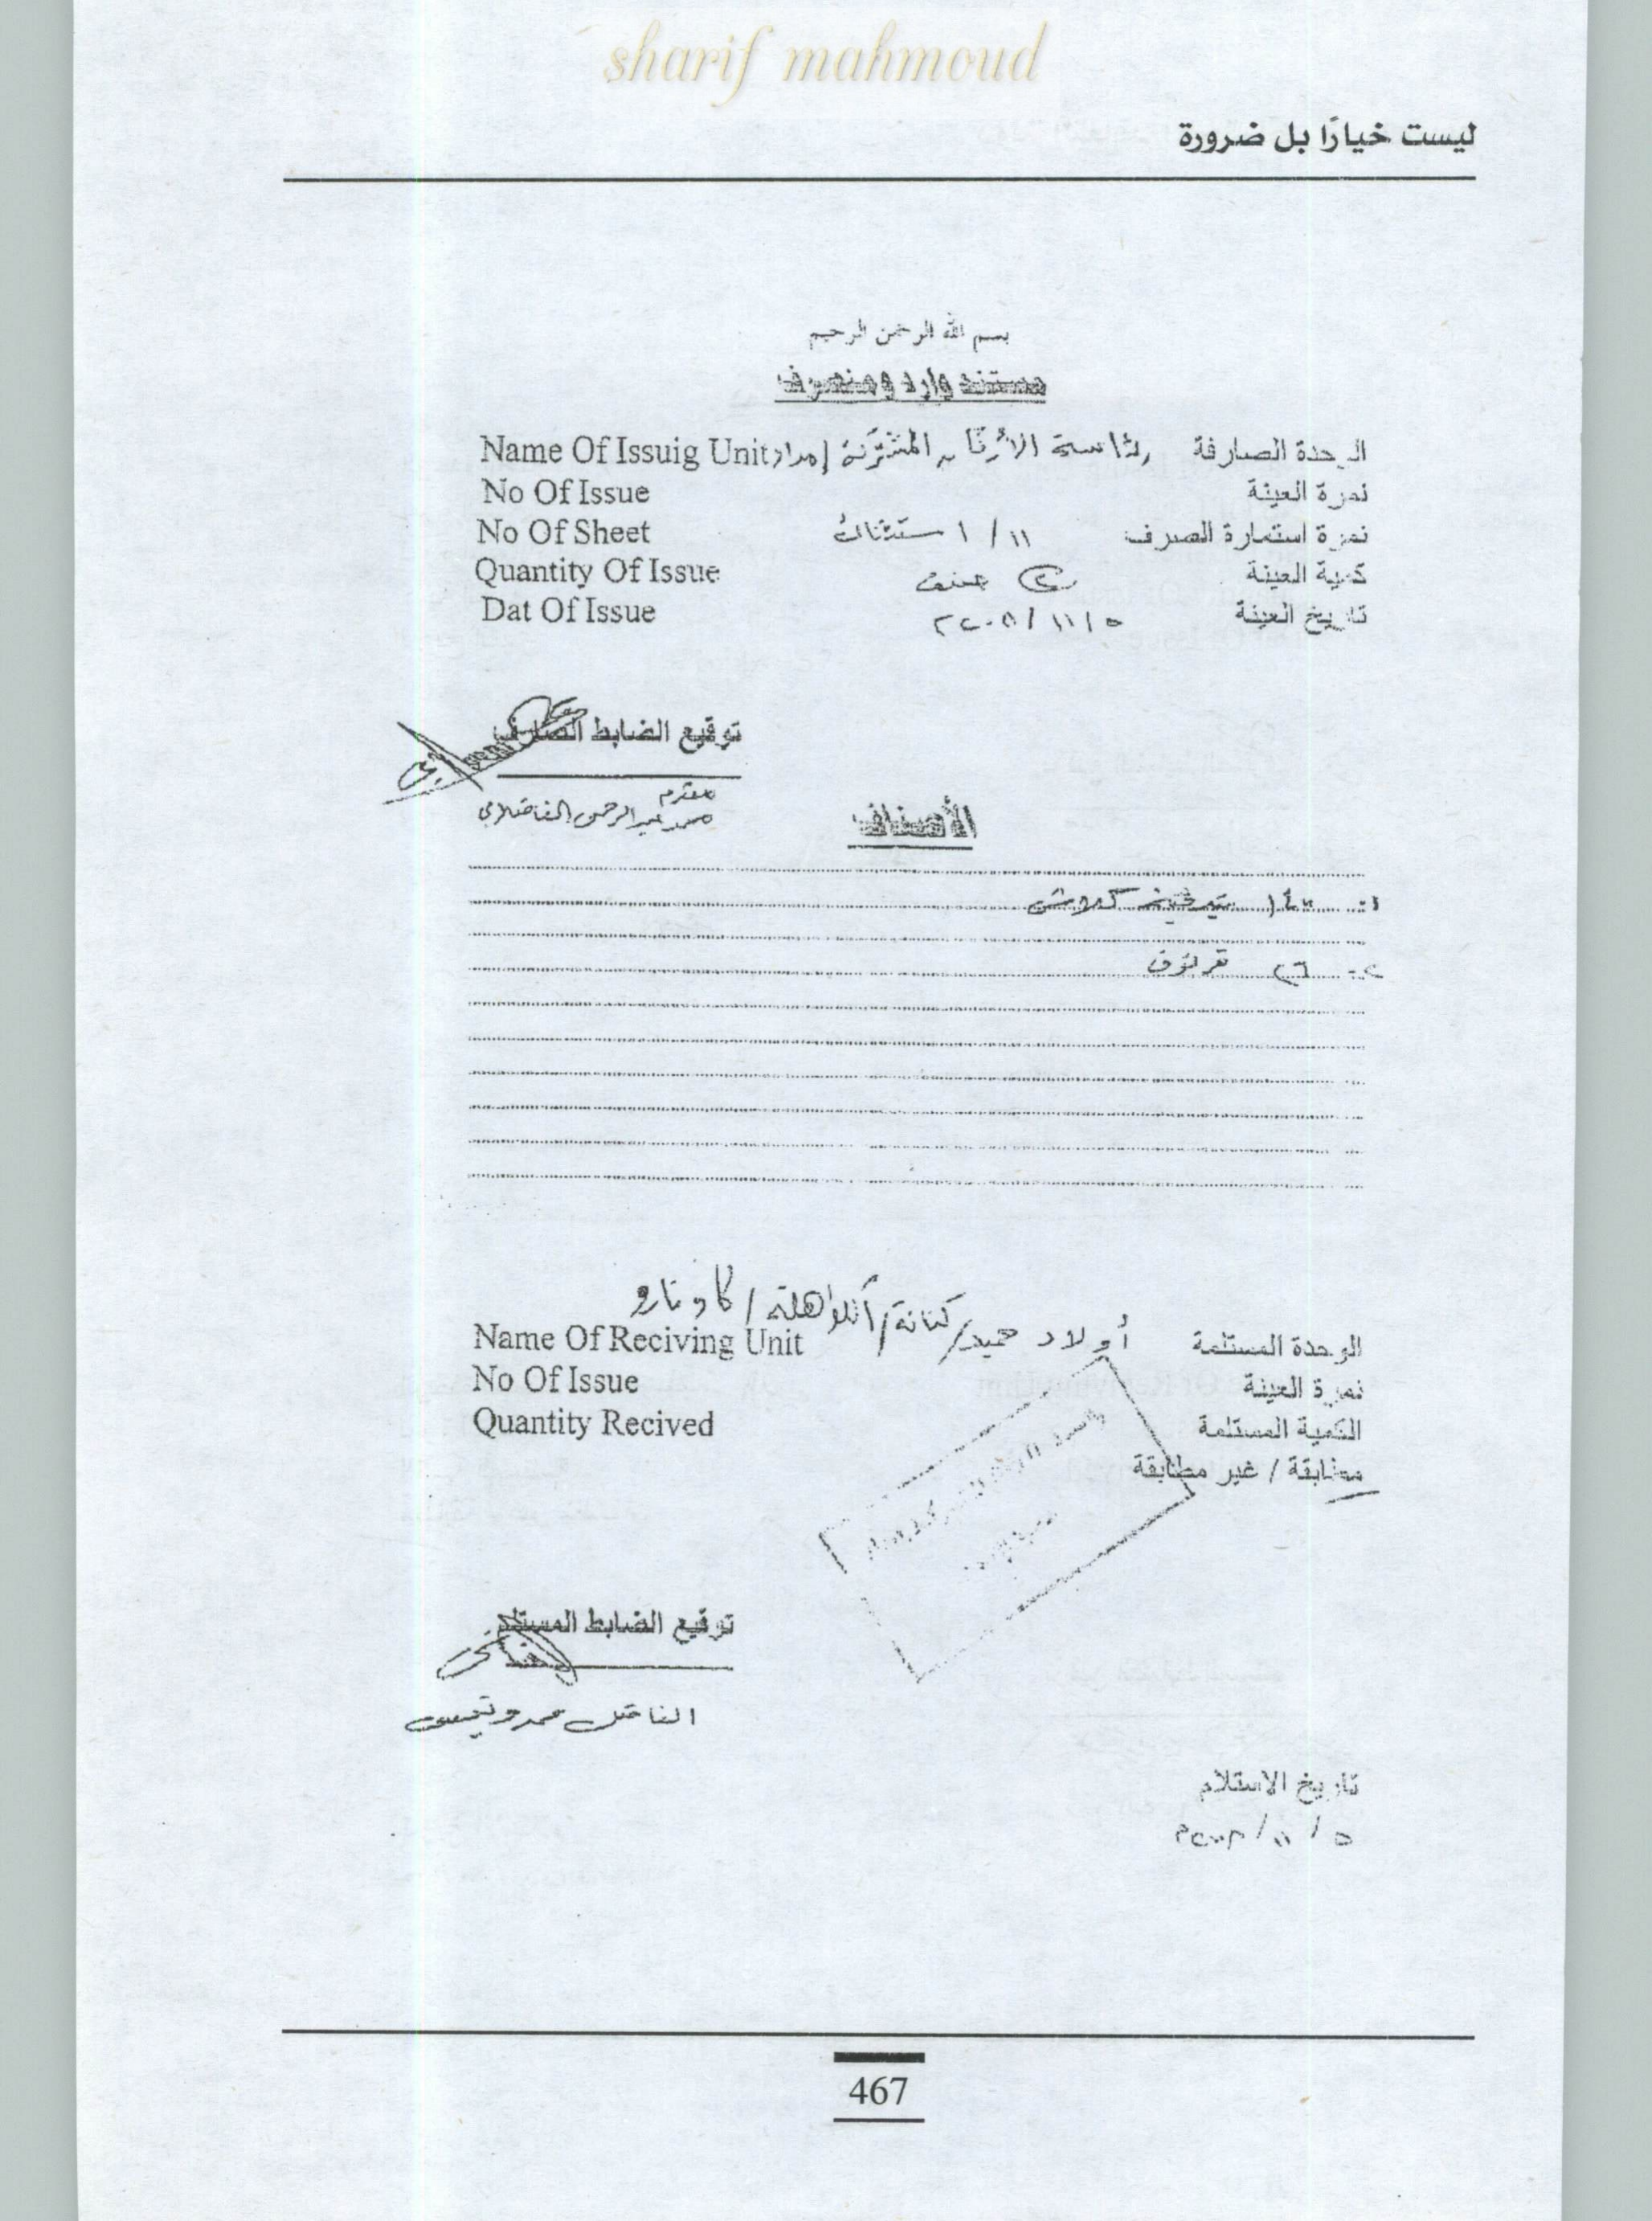 sharif mahmoud
ليست خيارًا بل ضرورة
بسم الله الرحمن الرحيم
مستند وارد ومنصرف
Name Of Issuig Unit رئاسة الأركان المشتركة إمداد الوحدة الصارفة
No Of Issue نمرة العينة
No Of Sheet ١١ / ١ نمرة استمارة الصرف
Quantity Of Issue ② صنف كمية العينة
Dat Of Issue ٥/١١/٢٠٠٨ تاريخ العينة
توقيع الضابط الصارف
مقدم
عبد الرحمن
الأصناف
١-
٢- ٢٦ قرنوف
أولاد حميد/كنانة/
Name Of Reciving Unit الوحدة المستلمة
No Of Issue نمرة العينة
Quantity Recived الكمية المستلمة
مطابقة / غير مطابقة
توقيع الضابط المستلم
الفاضل محمد
تاريخ الاستلام
٥ / ١١ /
467